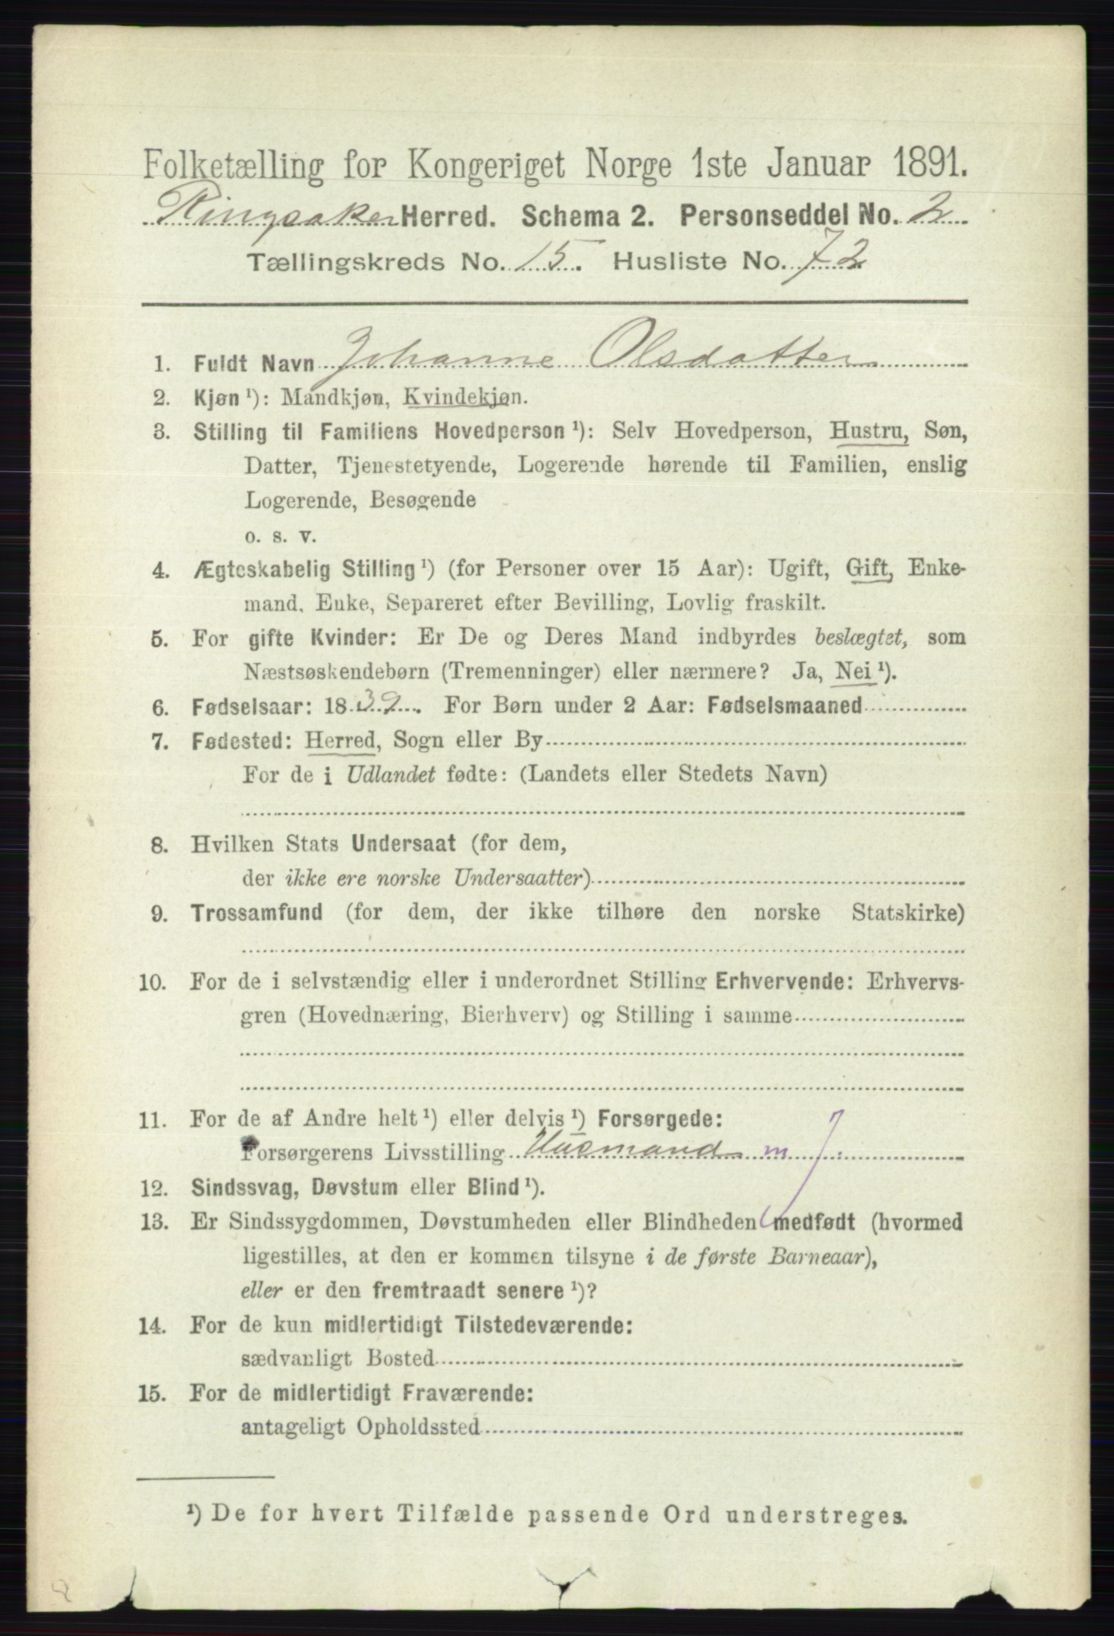 Folketælling for Kongeriget Norge 1ste Januar 1891.
Ringsaker Herred. Schema 2. Personseddel No. 2
Tællingskreds No. 15. Husliste No. 72
1. Fuldt Navn Johanne Olsdatter
2. Kjøn ¹): Mandkjøn, Kvindekjøn.
3. Stilling til Familiens Hovedperson ¹): Selv Hovedperson, Hustru, Søn,
Datter, Tjenestetyende, Logerende hørende til Familien, enslig
Logerende, Besøgende
o. s. v.
4. Ægteskabelig Stilling ¹) (for Personer over 15 Aar): Ugift, Gift, Enke-
mand, Enke, Separeret efter Bevilling, Lovlig fraskilt.
5. For gifte Kvinder: Er De og Deres Mand indbyrdes beslægtet, som
Næstsøskendebørn (Tremenninger) eller nærmere? Ja, Nei ¹).
6. Fødselsaar: 1839. For Børn under 2 Aar: Fødselsmaaned
7. Fødested: Herred, Sogn eller By
For de i Udlandet fødte: (Landets eller Stedets Navn)
8. Hvilken Stats Undersaat (for dem,
der ikke ere norske Undersaatter)
9. Trossamfund (for dem, der ikke tilhøre den norske Statskirke)
10. For de i selvstændig eller i underordnet Stilling Erhvervende: Erhvervs-
gren (Hovednæring, Bierhverv) og Stilling i samme
11. For de af Andre helt ¹) eller delvis ¹) Forsørgede:
Forsørgerens Livsstilling Husmand m J.
12. Sindssvag, Døvstum eller Blind ¹).
13. Er Sindssygdommen, Døvstumheden eller Blindheden medfødt (hvormed
ligestilles, at den er kommen tilsyne i de første Barneaar),
eller er den fremtraadt senere ¹)?
14. For de kun midlertidigt Tilstedeværende:
sædvanligt Bosted
15. For de midlertidigt Fraværende:
antageligt Opholdssted
¹) De for hvert Tilfælde passende Ord understreges.